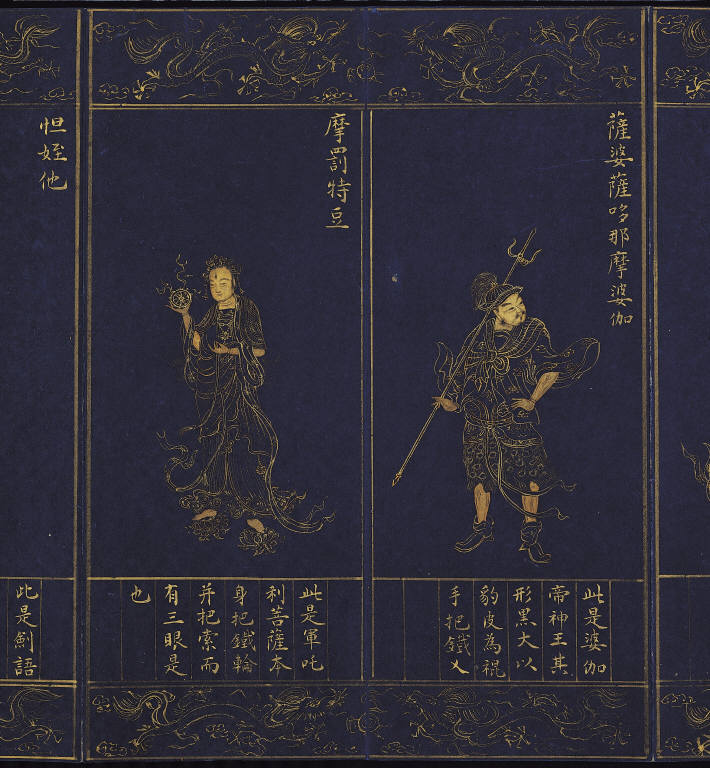 薩婆薩哆那摩婆伽
此是婆伽
帝神王其
形黑大以
豹皮為裩
手把鐵叉
摩罰特豆
此是軍吒
利菩薩本
身把鐵輪
并把索而
有三眼是
也
怛姪他
此是劍語